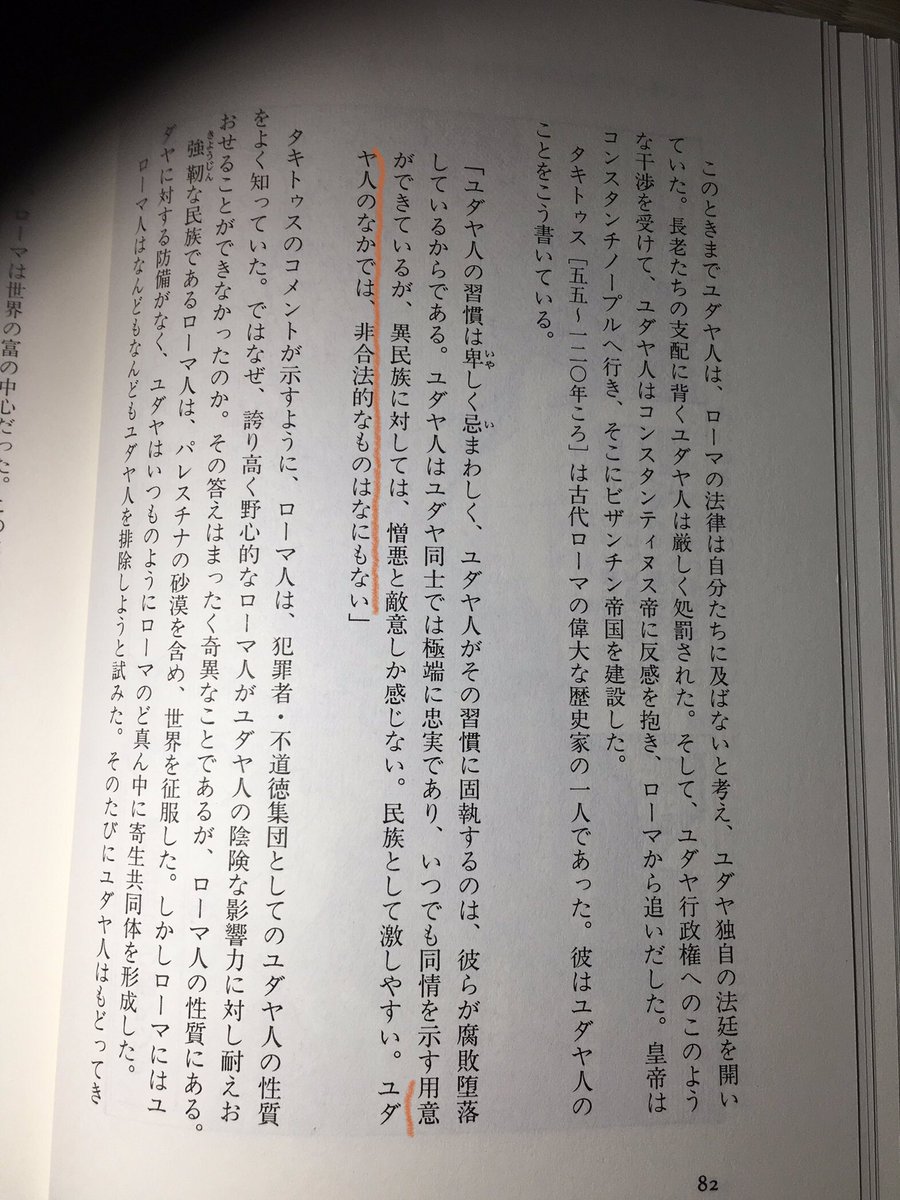 このときまでユダヤ人は、ローマの法律は自分たちに及ばないと考え、ユダヤ独自の法廷を開い
ていた。長老たちの支配に背くユダヤ人は厳しく処罰された。そして、ユダヤ行政権へのこのよう
な干渉を受けて、ユダヤ人はコンスタンティヌス帝に反感を抱き、ローマから追いだした。皇帝は
コンスタンチノープルへ行き、そこにビザンチン帝国を建設した。
タキトゥス［五五〜一二〇年ころ］は古代ローマの偉大な歴史家の一人であった。彼はユダヤ人の
ことをこう書いている。
「ユダヤ人の習慣は卑しく忌まわしく、ユダヤ人がその習慣に固執するのは、彼らが腐敗堕落
しているからである。ユダヤ人はユダヤ同士では極端に忠実であり、いつでも同情を示す用意
ができているが、異民族に対しては、憎悪と敵意しか感じない。民族として激しやすい。ユダ
ヤ人のなかでは、非合法的なものはなにもない」
タキトゥスのコメントが示すように、ローマ人は、犯罪者・不道徳集団としてのユダヤ人の性質
をよく知っていた。ではなぜ、誇り高く野心的なローマ人がユダヤ人の陰険な影響力に対し耐えお
おせることができなかったのか。その答えはまったく奇異なことであるが、ローマ人の性質にある。
強靭な民族であるローマ人は、パレスチナの砂漠を含め、世界を征服した。しかしローマにはユ
ダヤに対する防備がなく、ユダヤはいつものようにローマのど真ん中に寄生共同体を形成した。
ローマ人はなんどもなんどもユダヤ人を排除しようと試みた。そのたびにユダヤ人はもどってき
82
ローマは世界の富の中心だった。